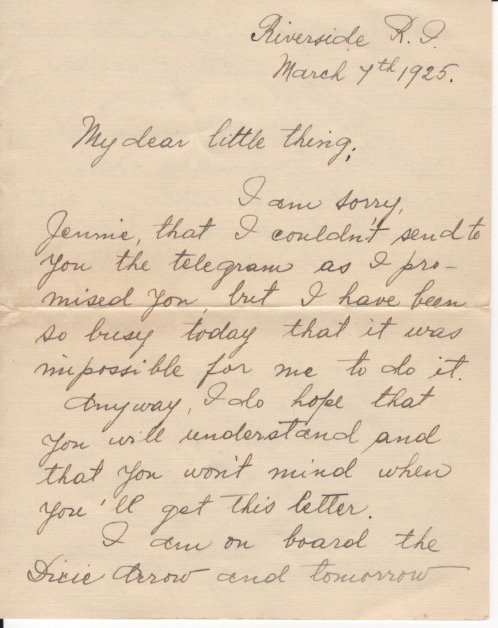 Riverside R. I.
March 7th 1925.
My dear little thing;
I am sorry,
Jennie, that I couldn't send to
you the telegram as I pro-
mised you, but I have been
so busy today that it was
impossible for me to do it.
Anyway, I do hope that
you will understand and
that you won't mind when
you'll get this letter.
I am on board the
Dixie Arrow and tomorrow